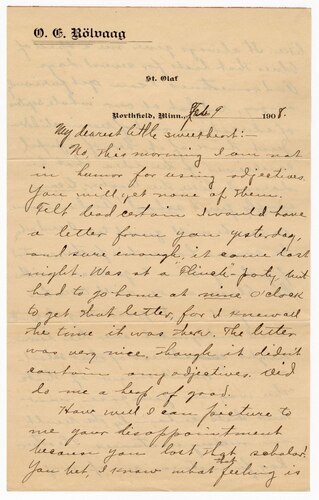 O. E. Rölvaag
St. Olaf
Northfield, Minn., Feb 9 1908.
My dearest little sweethert:—
No, this morning I am not
in humor for using adjectives.
You will get none of them.
Felt dead certain I would have
a letter from you yesterday,
and sure enough, it came last
night. Was at a "Flinch"-party, but
had to go home at nine o'clock
to get that letter, for I knew all
the time it was there. The letter
was very nice, though it didn't
contain any adjectives. Did
do me a heap of good.
How well I can picture to
me your disappointment
because you lost that scholar.
You bet, I know what feeling is